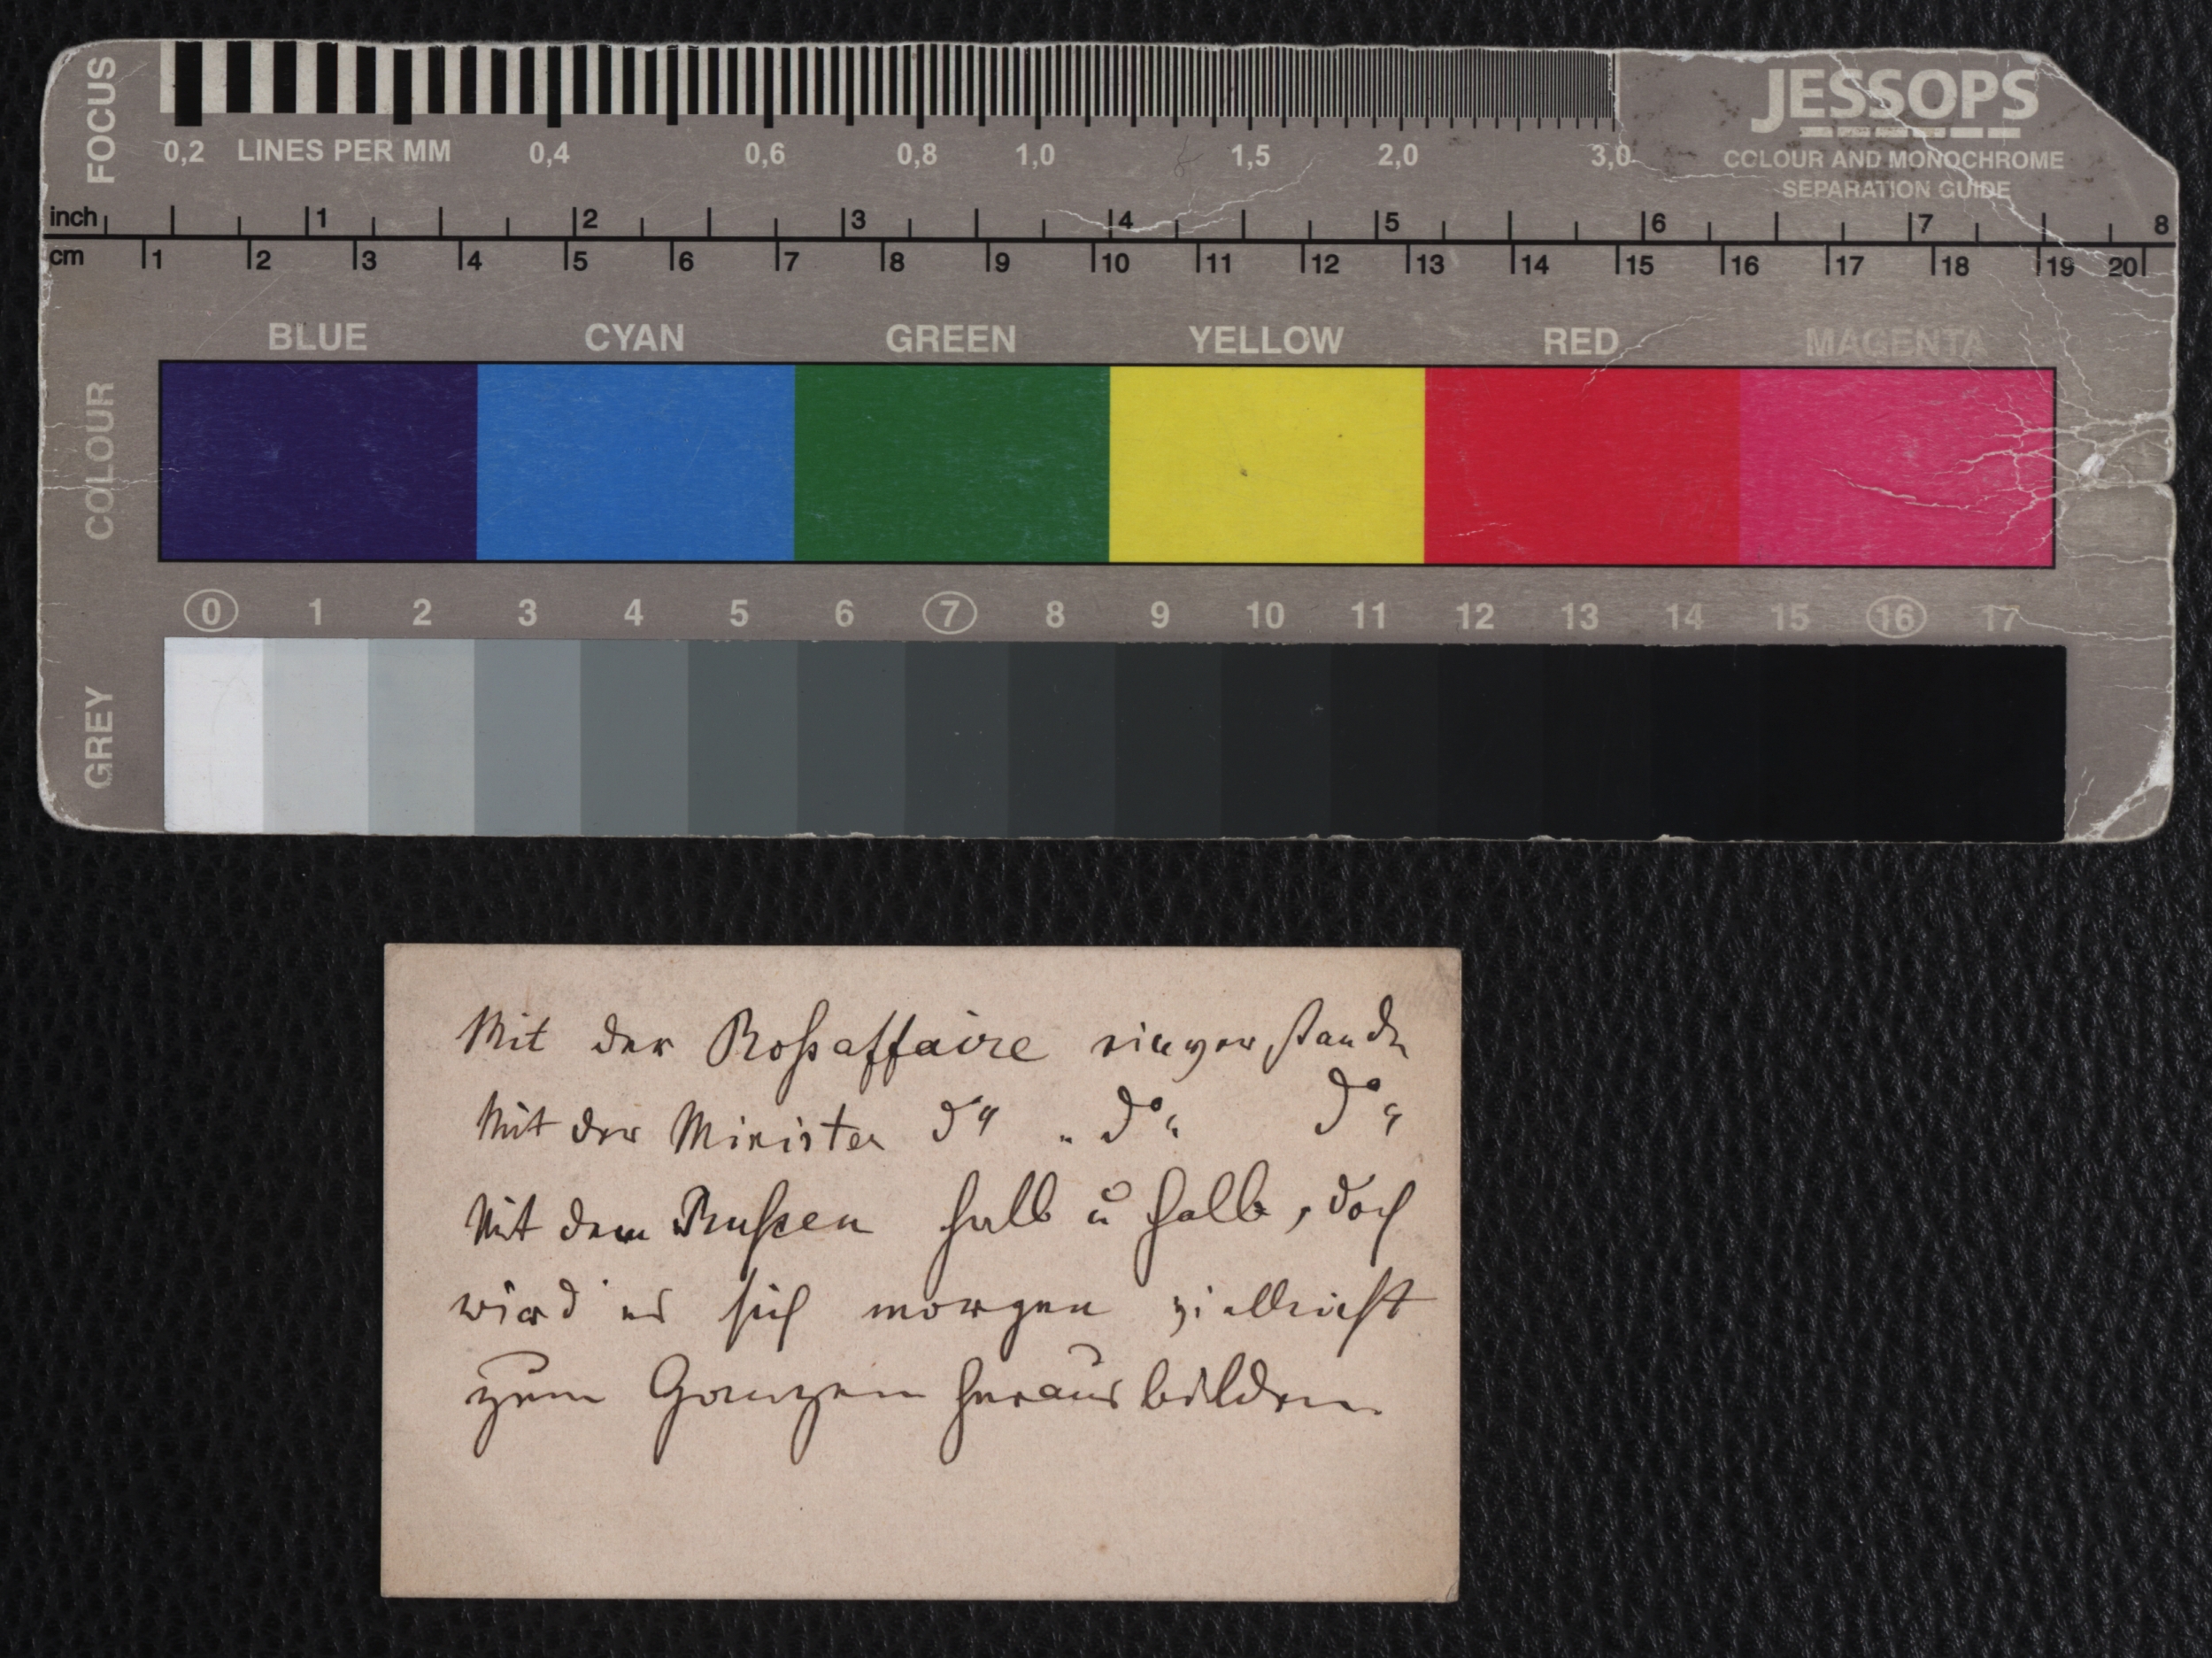 FOCUS
0,2 LINES PER MM 0,4 0,6 0,8 1,0 1,5 2,0 3,0
JESSOPS
COLOUR AND MONOCHROME
SEPARATION GUIDE
inch 1 2 3 4 5 6 7 8
cm 1 2 3 4 5 6 7 8 9 10 11 12 13 14 15 16 17 18 19 20
BLUE CYAN GREEN YELLOW RED MAGENTA
COLOUR
0 1 2 3 4 5 6 7 8 9 10 11 12 13 14 15 16 17
GREY
Mit der Roßaffaire einverstanden
Mit der Minister d° " d° " d° "
Mit dem Rußen halb u halb, doch
wird es sich morgen vielleicht
zum Ganzen herausbilden.